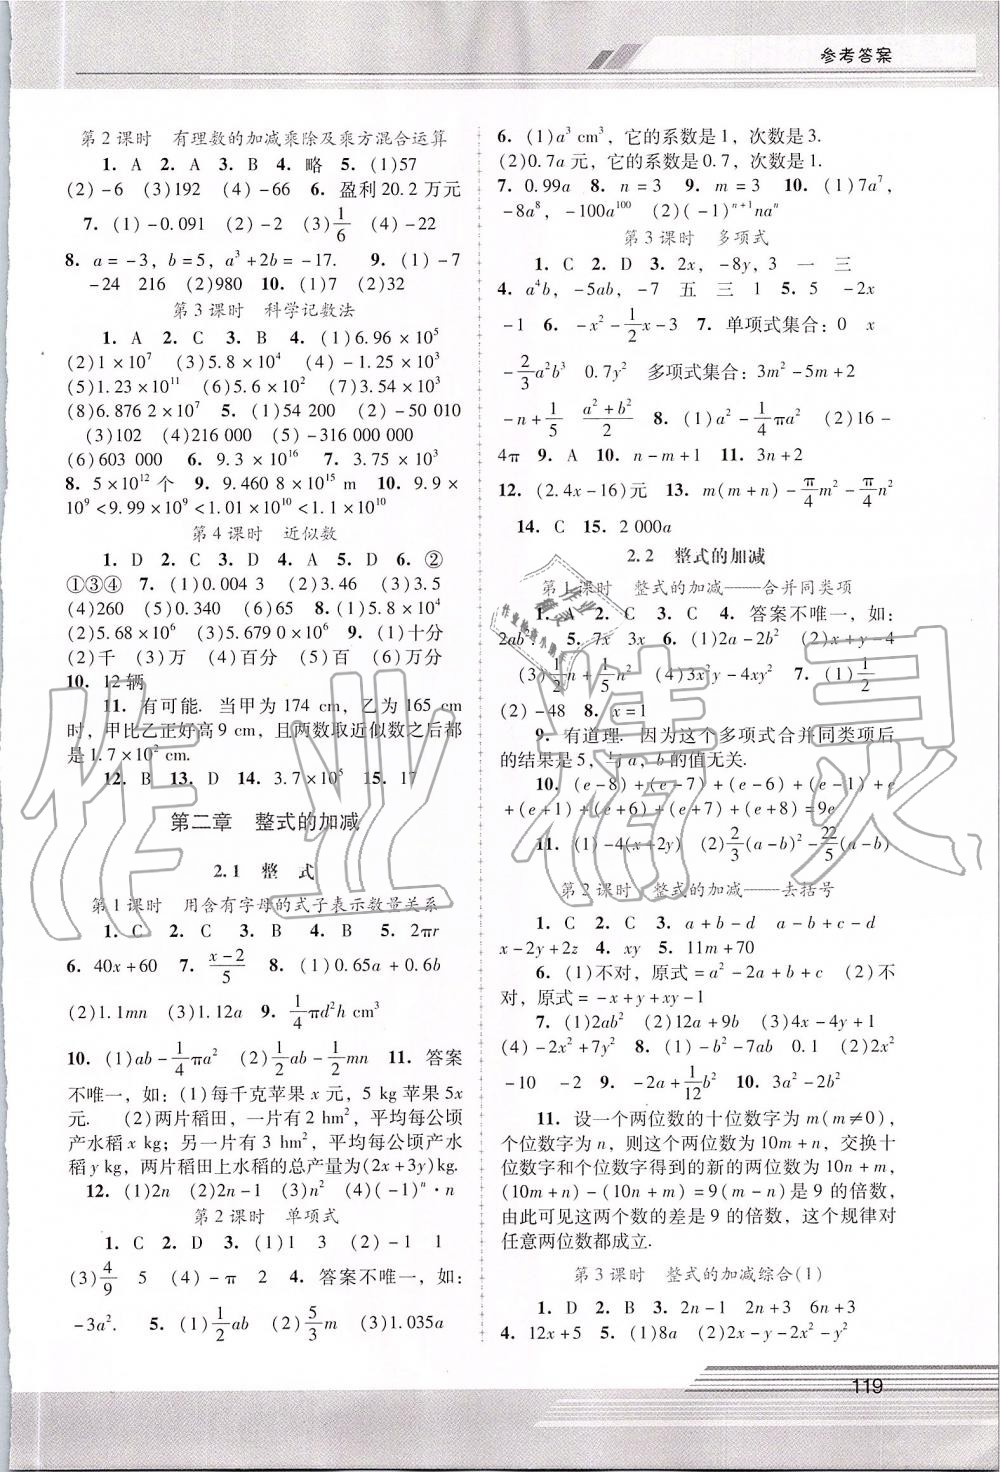 参考答案
第2课时 有理数的加减乘除及乘方混合运算
1. A 2. A 3. B 4. 略 5. (1)57
(2)-6 (3)192 (4)-66 6. 盈利20.2万元
7. (1)-0.091 (2)-2 (3)1/6 (4)-22
8. a=-3, b=5, a³+2b=-17. 9. (1)-7
-24 216 (2)980 10. (1)7 (2)32
第3课时 科学记数法
1. A 2. C 3. B 4. (1)6.96×10⁵
(2)1×10⁷ (3)5.8×10⁴ (4)-1.25×10³
(5)1.23×10¹¹ (6)5.6×10² (7)3.54×10³
(8)6.876 2×10⁷ 5. (1)54 200 (2)-50 010
(3)102 (4)216 000 (5)-316 000 000
(6)603 000 6. 9.3×10¹⁶ 7. 3.75×10³
8. 5×10¹²个 9. 9.460 8×10¹⁵ m 10. 9.9×
10⁹<9.99×10⁹<1.01×10¹⁰<1.1×10¹⁰
第4课时 近似数
1. D 2. C 3. D 4. A 5. D 6. ②
①③④ 7. (1)0.004 3 (2)3.46 (3)3.5
(4)260 (5)0.340 (6)65 8. (1)5.8×10⁴
(2)5.68×10⁶ (3)5.679 0×10⁶ 9. (1)十分
(2)千 (3)万 (4)百分 (5)百 (6)万分
10. 12辆
11. 有可能. 当甲为174 cm，乙为165 cm
时，甲比乙正好高9 cm，且两数取近似数之后都
是1.7×10² cm.
12. B 13. D 14. 3.7×10⁵ 15. 17
第二章 整式的加减
2.1 整 式
第1课时 用含有字母的式子表示数量关系
1. C 2. C 3. B 4. B 5. 2πr
6. 40x+60 7. (x-2)/5 8. (1)0.65a+0.6b
(2)1.1mn (3)1.12a 9. 1/4πd²h cm³
10. (1)ab-1/4πa² (2)1/2ab-1/2mn 11. 答案
不唯一，如：(1)每千克苹果x元，5 kg苹果5x
元. (2)两片稻田，一片有2 hm²，平均每公顷
产水稻x kg；另一片有3 hm²，平均每公顷产水
稻y kg，两片稻田上水稻的总产量为(2x+3y)kg.
12. (1)2n (2)2n-1 (3)n² (4)(-1)ⁿ·n
第2课时 单项式
1. C 2. D 3. (1)1 3 (2)-1 1
(3)4/9 5 (4)-π 2 4. 答案不唯一，如：
-3a². 5. (1)1/2ab (2)5/3m (3)1.035a
6. (1)a³ cm³，它的系数是1，次数是3.
(2)0.7a元，它的系数是0.7，次数是1.
7. 0.99a 8. n=3 9. m=3 10. (1)7a⁷,
-8a⁸, -100a¹⁰⁰ (2)(-1)ⁿ⁺¹naⁿ
第3课时 多项式
1. C 2. D 3. 2x, -8y, 3 一 三
4. a⁴b, -5ab, -7 五 三 1 5. 5 -2x
-1 6. -x²-1/2x-3 7. 单项式集合：0 x
-2/3a²b³ 0.7y² 多项式集合：3m²-5m+2
-n+1/5 (a²+b²)/2 8. (1)a²-1/4πa² (2)16-
4π 9. A 10. n-m+1 11. 3n+2
12. (2.4x-16)元 13. m(m+n)-π/4m²-π/4n²
14. C 15. 2 000a
2.2 整式的加减
第1课时 整式的加减——合并同类项
1. A 2. C 3. C 4. 答案不唯一，如：
2ab² 5. 7x 3x 6. (1)2a-2b² (2)x+y-4
(3)1/2n+1/5n² (4)3x²y-4xy² 7. (1)1/2
(2)-48 8. x=1
9. 有道理. 因为这个多项式合并同类项后
的结果是5，与a，b的值无关.
10. (e-8)+(e-7)+(e-6)+(e-1)+e
+(e+1)+(e+6)+(e+7)+(e+8)=9e
11. (1)-4(x+2y) (2)2/3(a-b)²-22/5(a-b)
第2课时 整式的加减——去括号
1. C 2. C 3. a+b-d a-b+c-d
x-2y+2z 4. xy 5. 11m+70
6. (1)不对，原式=a²-2a+b+c (2)不
对，原式=-x+y+xy-1
7. (1)2ab² (2)12a+9b (3)4x-4y+1
(4)-2x²+7y² 8. (1)-b²-7ab 0.1 (2)2x²
-10 -2 9. 1/4a+1/12b² 10. 3a²-2ab
11. 设一个两位数的十位数字为m(m≠0)，
个位数字为n，则这个两位数为10m+n，交换十
位数字和个位数字得到的新的两位数为10n+m，
(10m+n)-(10n+m)=9(m-n)是9的倍数，
由此可见这两个数的差是9的倍数，这个规律对
任意两位数都成立.
第3课时 整式的加减综合(1)
1. D 2. B 3. 2n-1 2n+3 6n+3
4. 12x+5 5. (1)8a (2)2x-y-2x²-y²
119
作业精灵